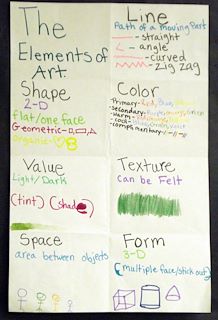 The
Elements of
Art.
Line
Path of a moving Part
- straight
- angle
- curved
zig zag
Shape
2-D
flat/one face
Geometric-
Organic-
Color
Primary-Red, Blue, Yellow
Secondary-Purple, Orange, Green
warm-
cool-
complimentary-
Value
Light/Dark
(tint) (shade)
Texture
can be Felt
Space
area between objects
Form
3-D
(multiple face/stick out)